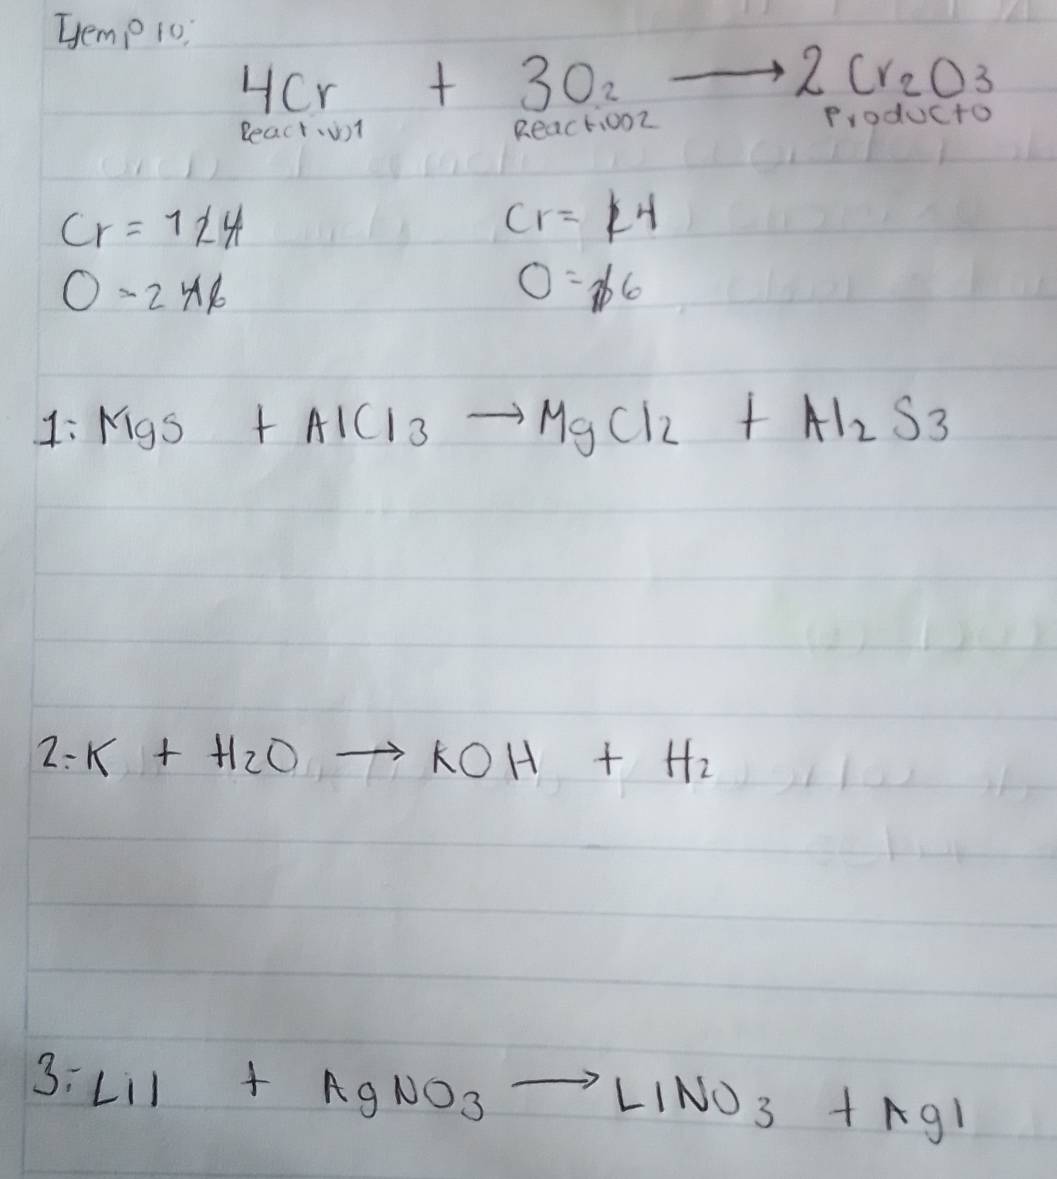 Ejemplo:
4Cr + 3O₂ → 2Cr₂O3
Reactivo1 Reactivo2 Producto
Cr = 1 2 4 Cr = 2 4
O = 2 4 6 O = 3 6
1: MgS + AlCl3 → MgCl2 + Al2S3
2: K + H2O → KOH + H2
3: LiI + AgNO3 → LiNO3 + AgI